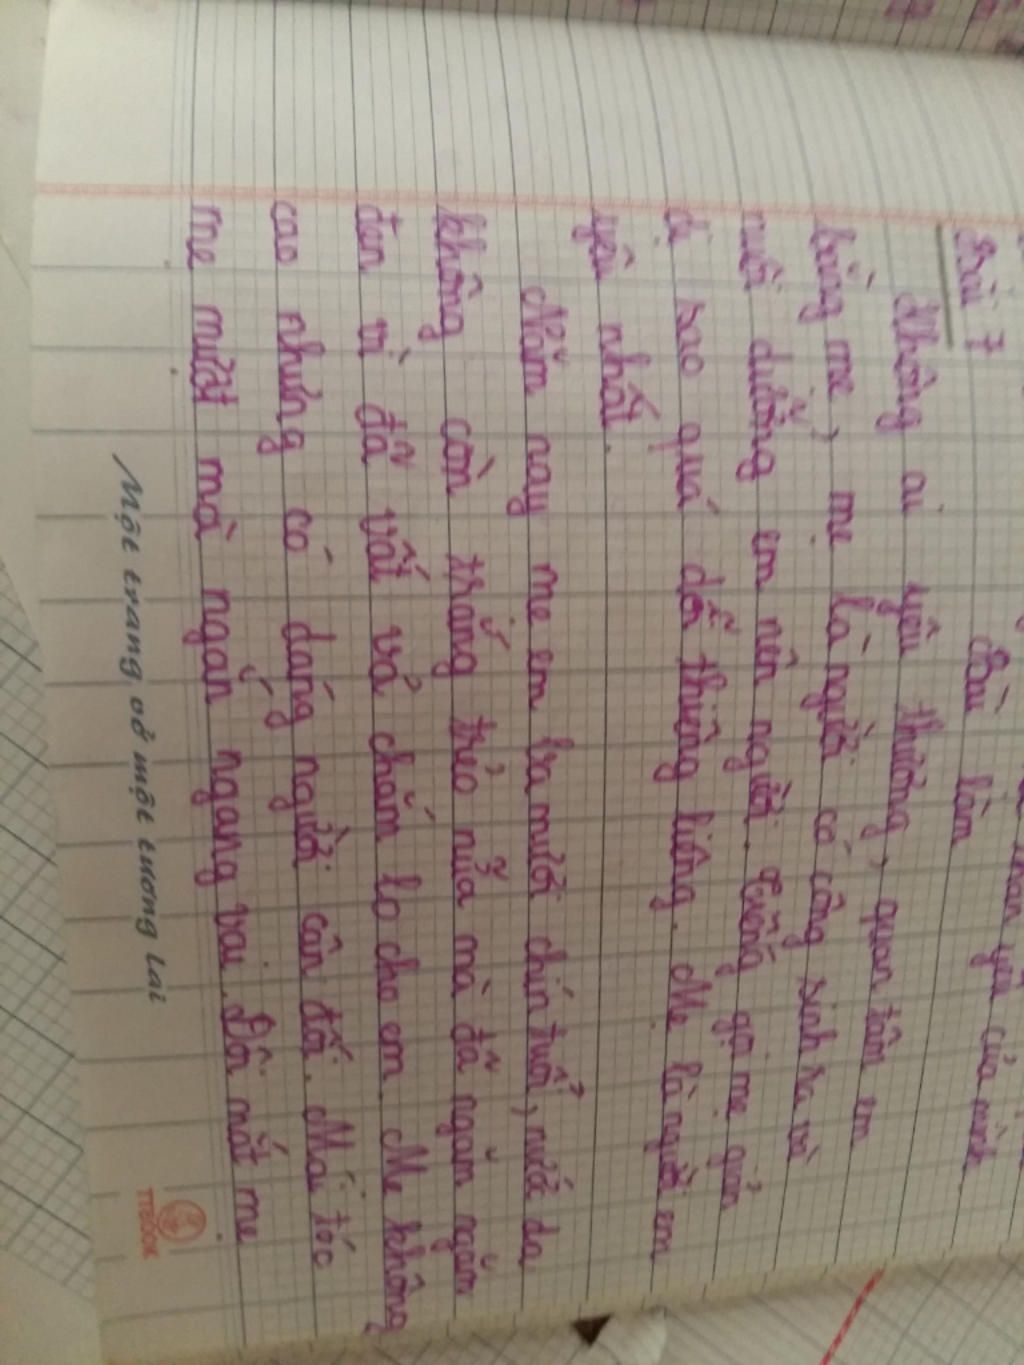 thân yêu của mình.
Bài 7
Bài làm
Không ai yêu thương, quan tâm em
bằng mẹ, mẹ là người có công sinh ra và
nuôi dưỡng em nên người. Tiếng gọi mẹ giản
dị sao quá đỗi thiêng liêng. Mẹ là người em
yêu nhất.
Năm nay mẹ em ba mươi chín tuổi, nước da
không còn trắng trẻo nữa mà đã ngăm ngăm
đen vì đã vất vả chăm lo cho em. Mẹ không
cao nhưng có dáng người cân đối. Mái tóc
mẹ mượt mà ngắn ngang vai. Đôi mắt mẹ
Một trang vở một tương lai
TTEBOOK